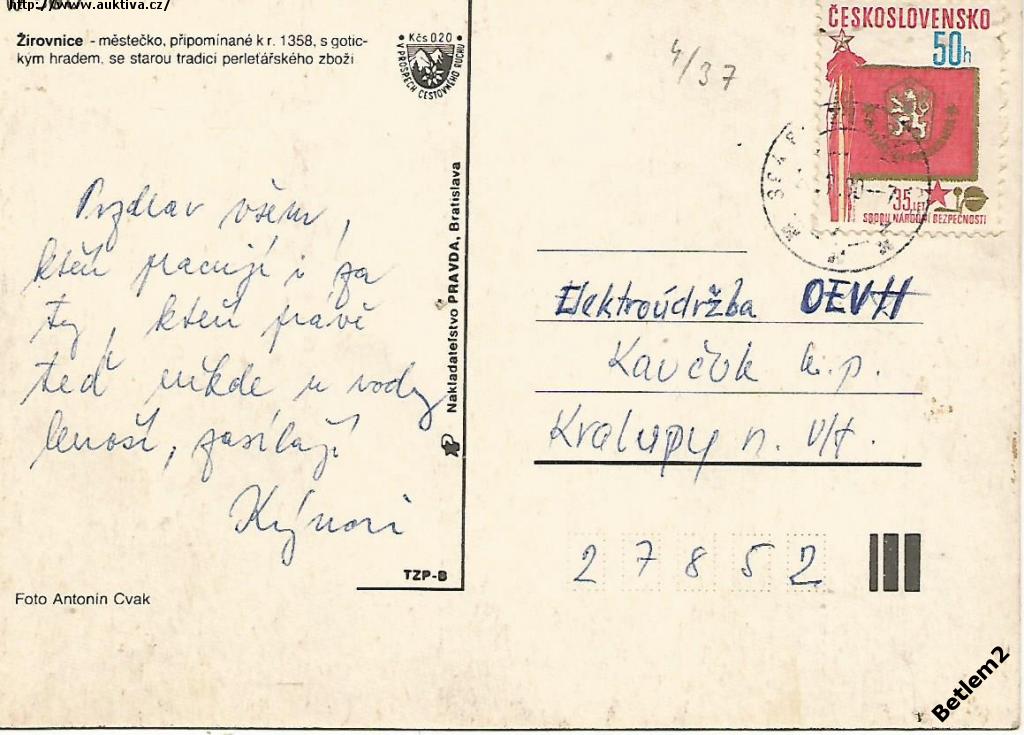 http://www.auktiva.cz/
Žirovnice - městečko, připomínané k r. 1358, s gotic-
kým hradem, se starou tradicí perleťářského zboží
• Kčs 0.20 •
V PROSPĚCH CESTOVNÍHO RUCHU
4/37
ČESKOSLOVENSKO
50h
35 LET
SBORU NÁRODNÍ BEZPEČNOSTI
Pozdrav všem,
kteří pracují i za
ty, kteří právě
teď někde u vody
lenoší, zasílají
Kýnovi
Nakladatelství PRAVDA, Bratislava
TZP-8
Foto Antonín Cvak
Elektroúdržba OEVH
Kaučuk n.p.
Kralupy n. Vlt.
27852
Betlem2